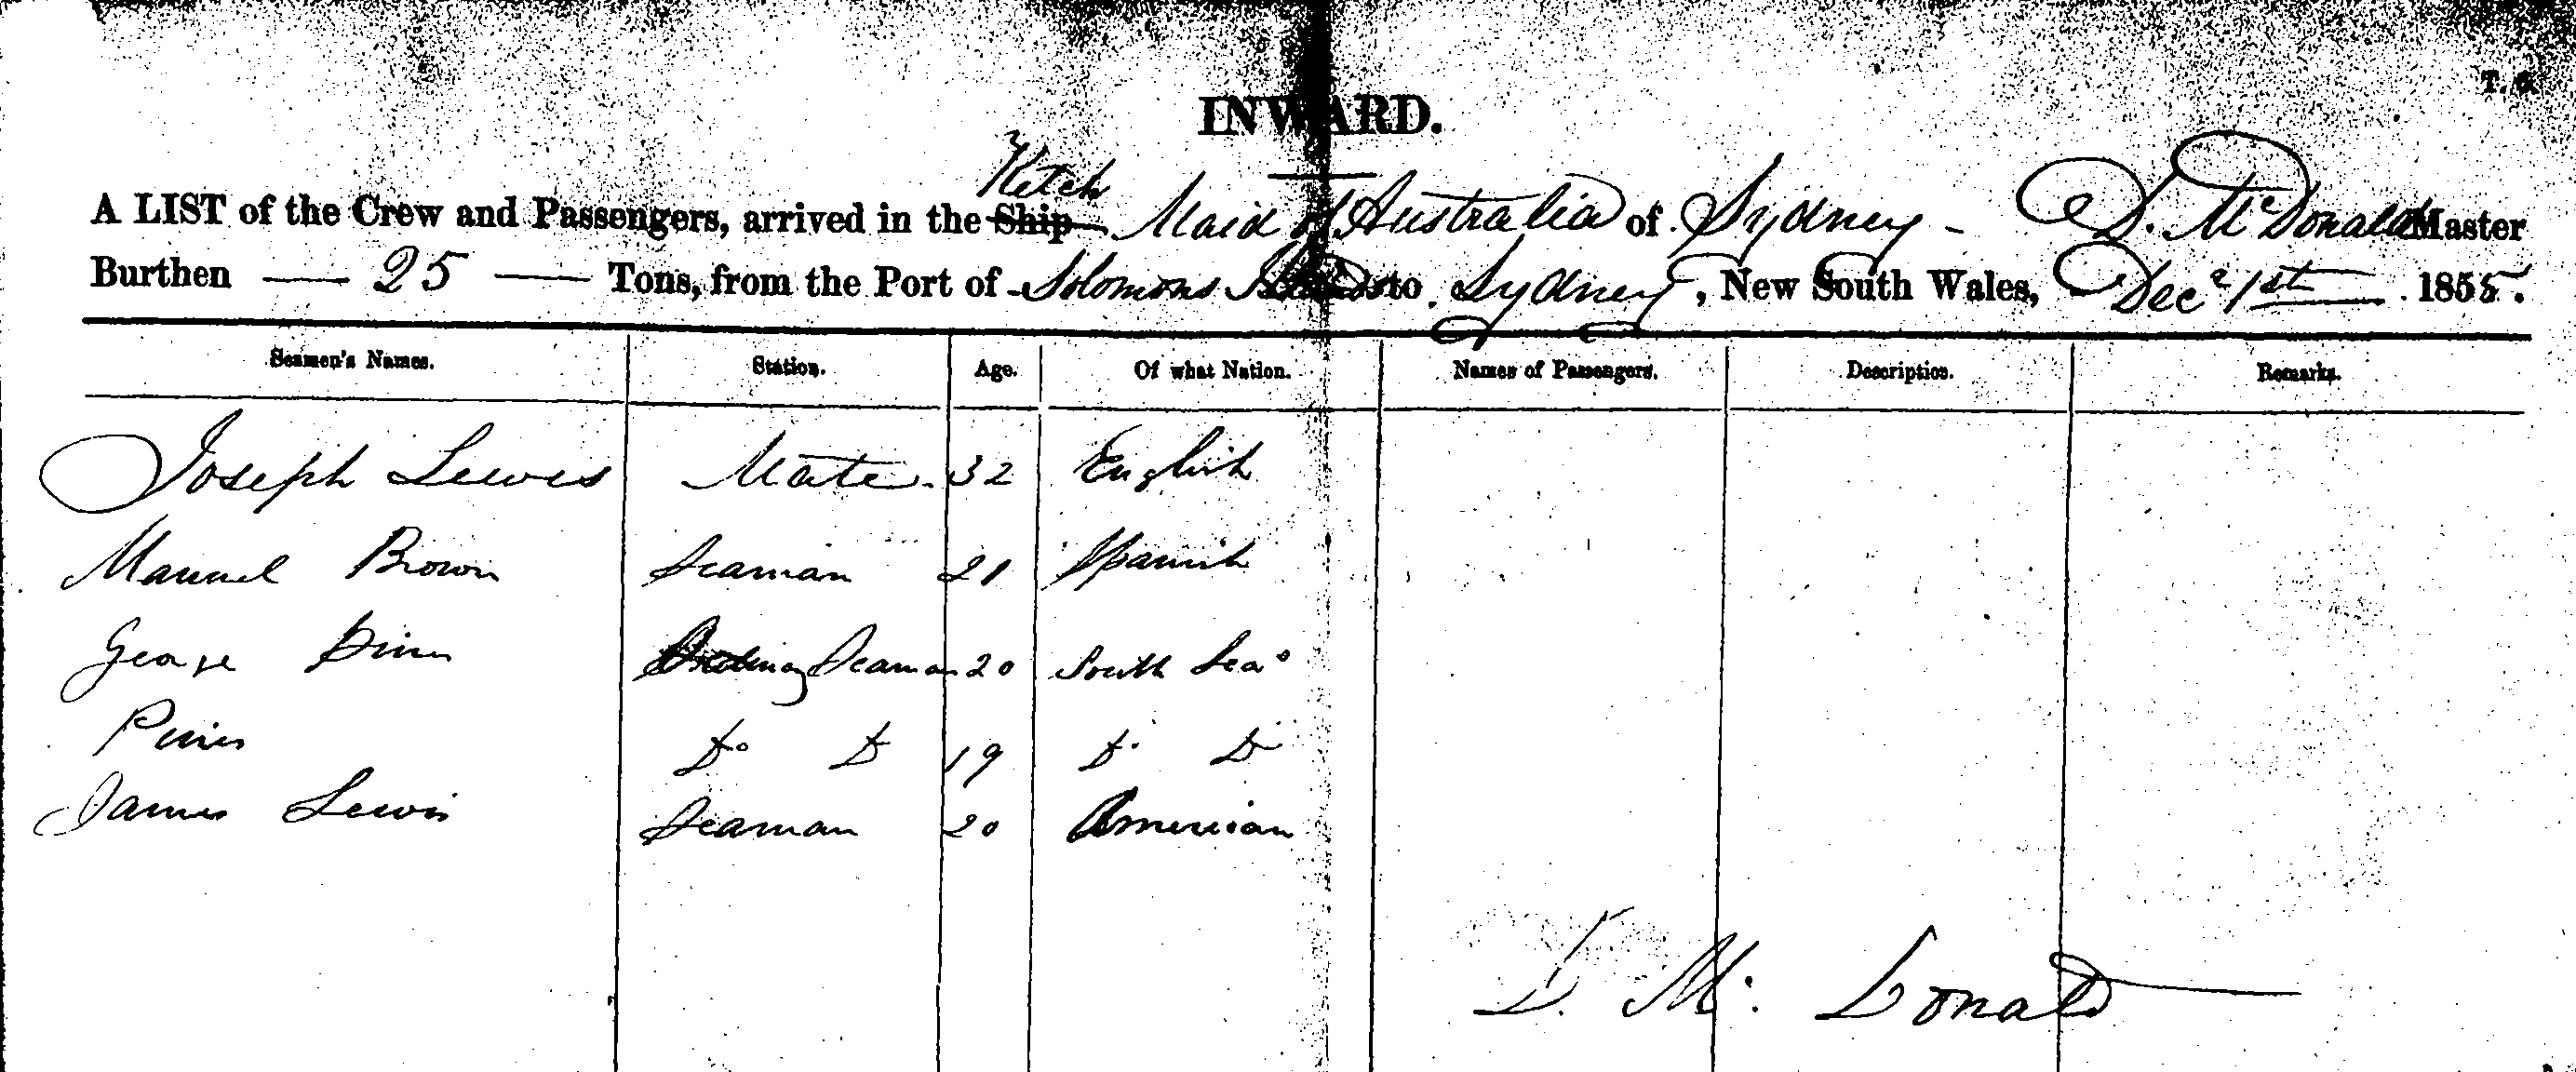 T. G.
INWARD.
Ketch
A LIST of the Crew and Passengers, arrived in the Ship Maid of Australia of Sydney - D. McDonald Master
Burthen — 25 — Tons, from the Port of Solomons Islands to Sydney, New South Wales, Decr 1st 1855.
Seamen's Names. Station. Age. Of what Nation. Names of Passengers. Description. Remarks.
Joseph Lewes Mate. 32 English
Manuel Brown Seaman 21 Spanish
George Seaman 20 South Seas
Do Do 19 Do Do
James Lewis Seaman 20 American
D. Mc Donald